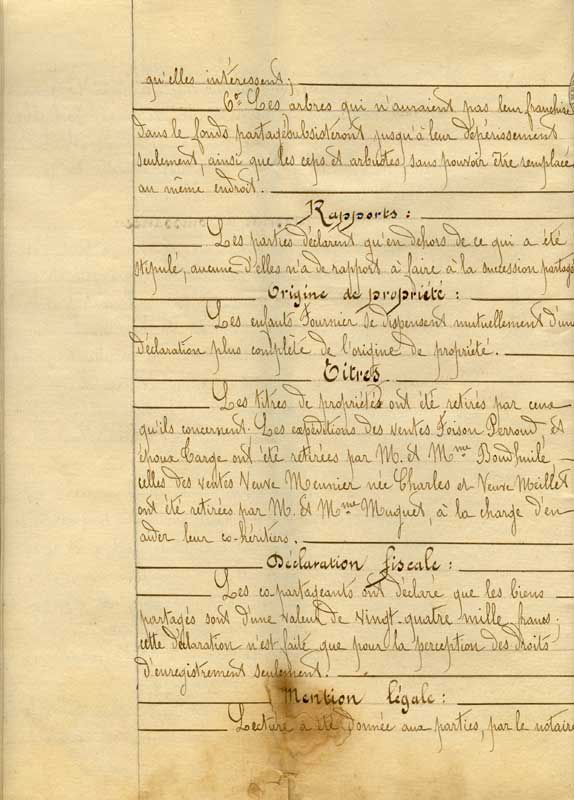 qu'elles intéressent;
6º. Les arbres qui n'auraient pas leur franchise
dans le fonds partagé subsisteront jusqu'à leur dépérissement
seulement, ainsi que les ceps et arbustes, sans pouvoir être remplacé
au même endroit.
Rapports:
Les parties déclarent qu'en dehors de ce qui a été
stipulé, aucune d'elles n'a de rapport à faire à la succession partagé
Origine de propriété:
Les enfants Fournier se dispensent mutuellement d'un
déclaration plus complète de l'origine de propriété.
Titres
Les titres de propriétés ont été retirés par ceux
qu'ils concernent. Les expéditions des ventes Foison Perroud et
Choux Carge ont été retirées par M. et Mme
celles des ventes Veuve Meunier née Charles et Veuve Meillet
ont été retirées par M. et Mme Muguet, à la charge d'en
aider leur co-héritiers.
Déclaration fiscale:
Les co-partageants ont déclaré que les biens
partagés sont d'une valeur de vingt-quatre mille francs;
cette déclaration n'est faite que pour la perception des droits
d'enregistrement seulement.
Mention légale:
Lecture a été donnée aux parties, par le notaire